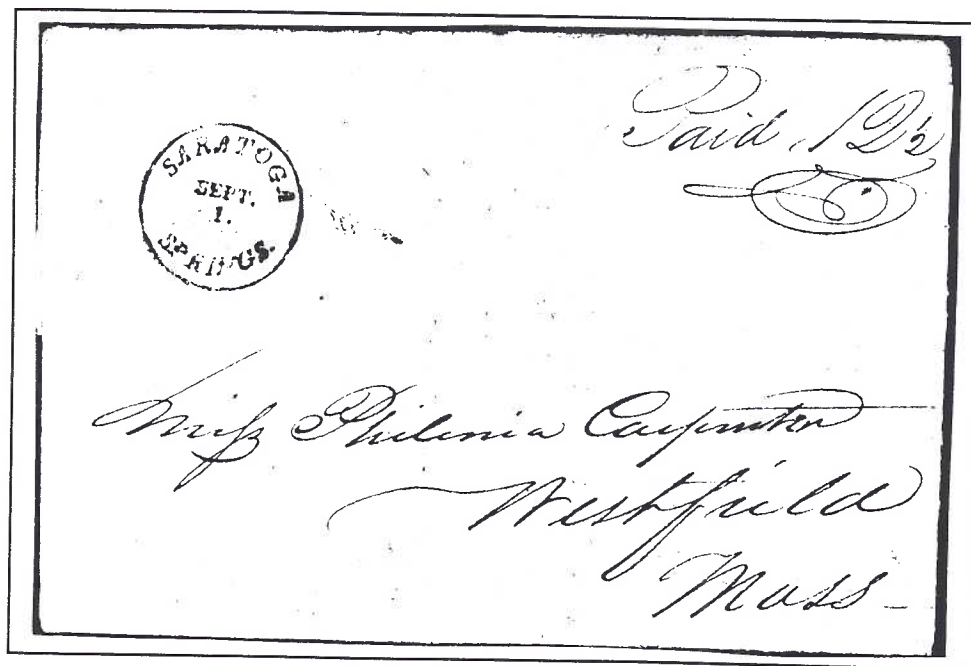 SARATOGA
SEPT.
1.
SPRINGS.
Paid
Miss Philenia Carpenter
Westfield
Mass